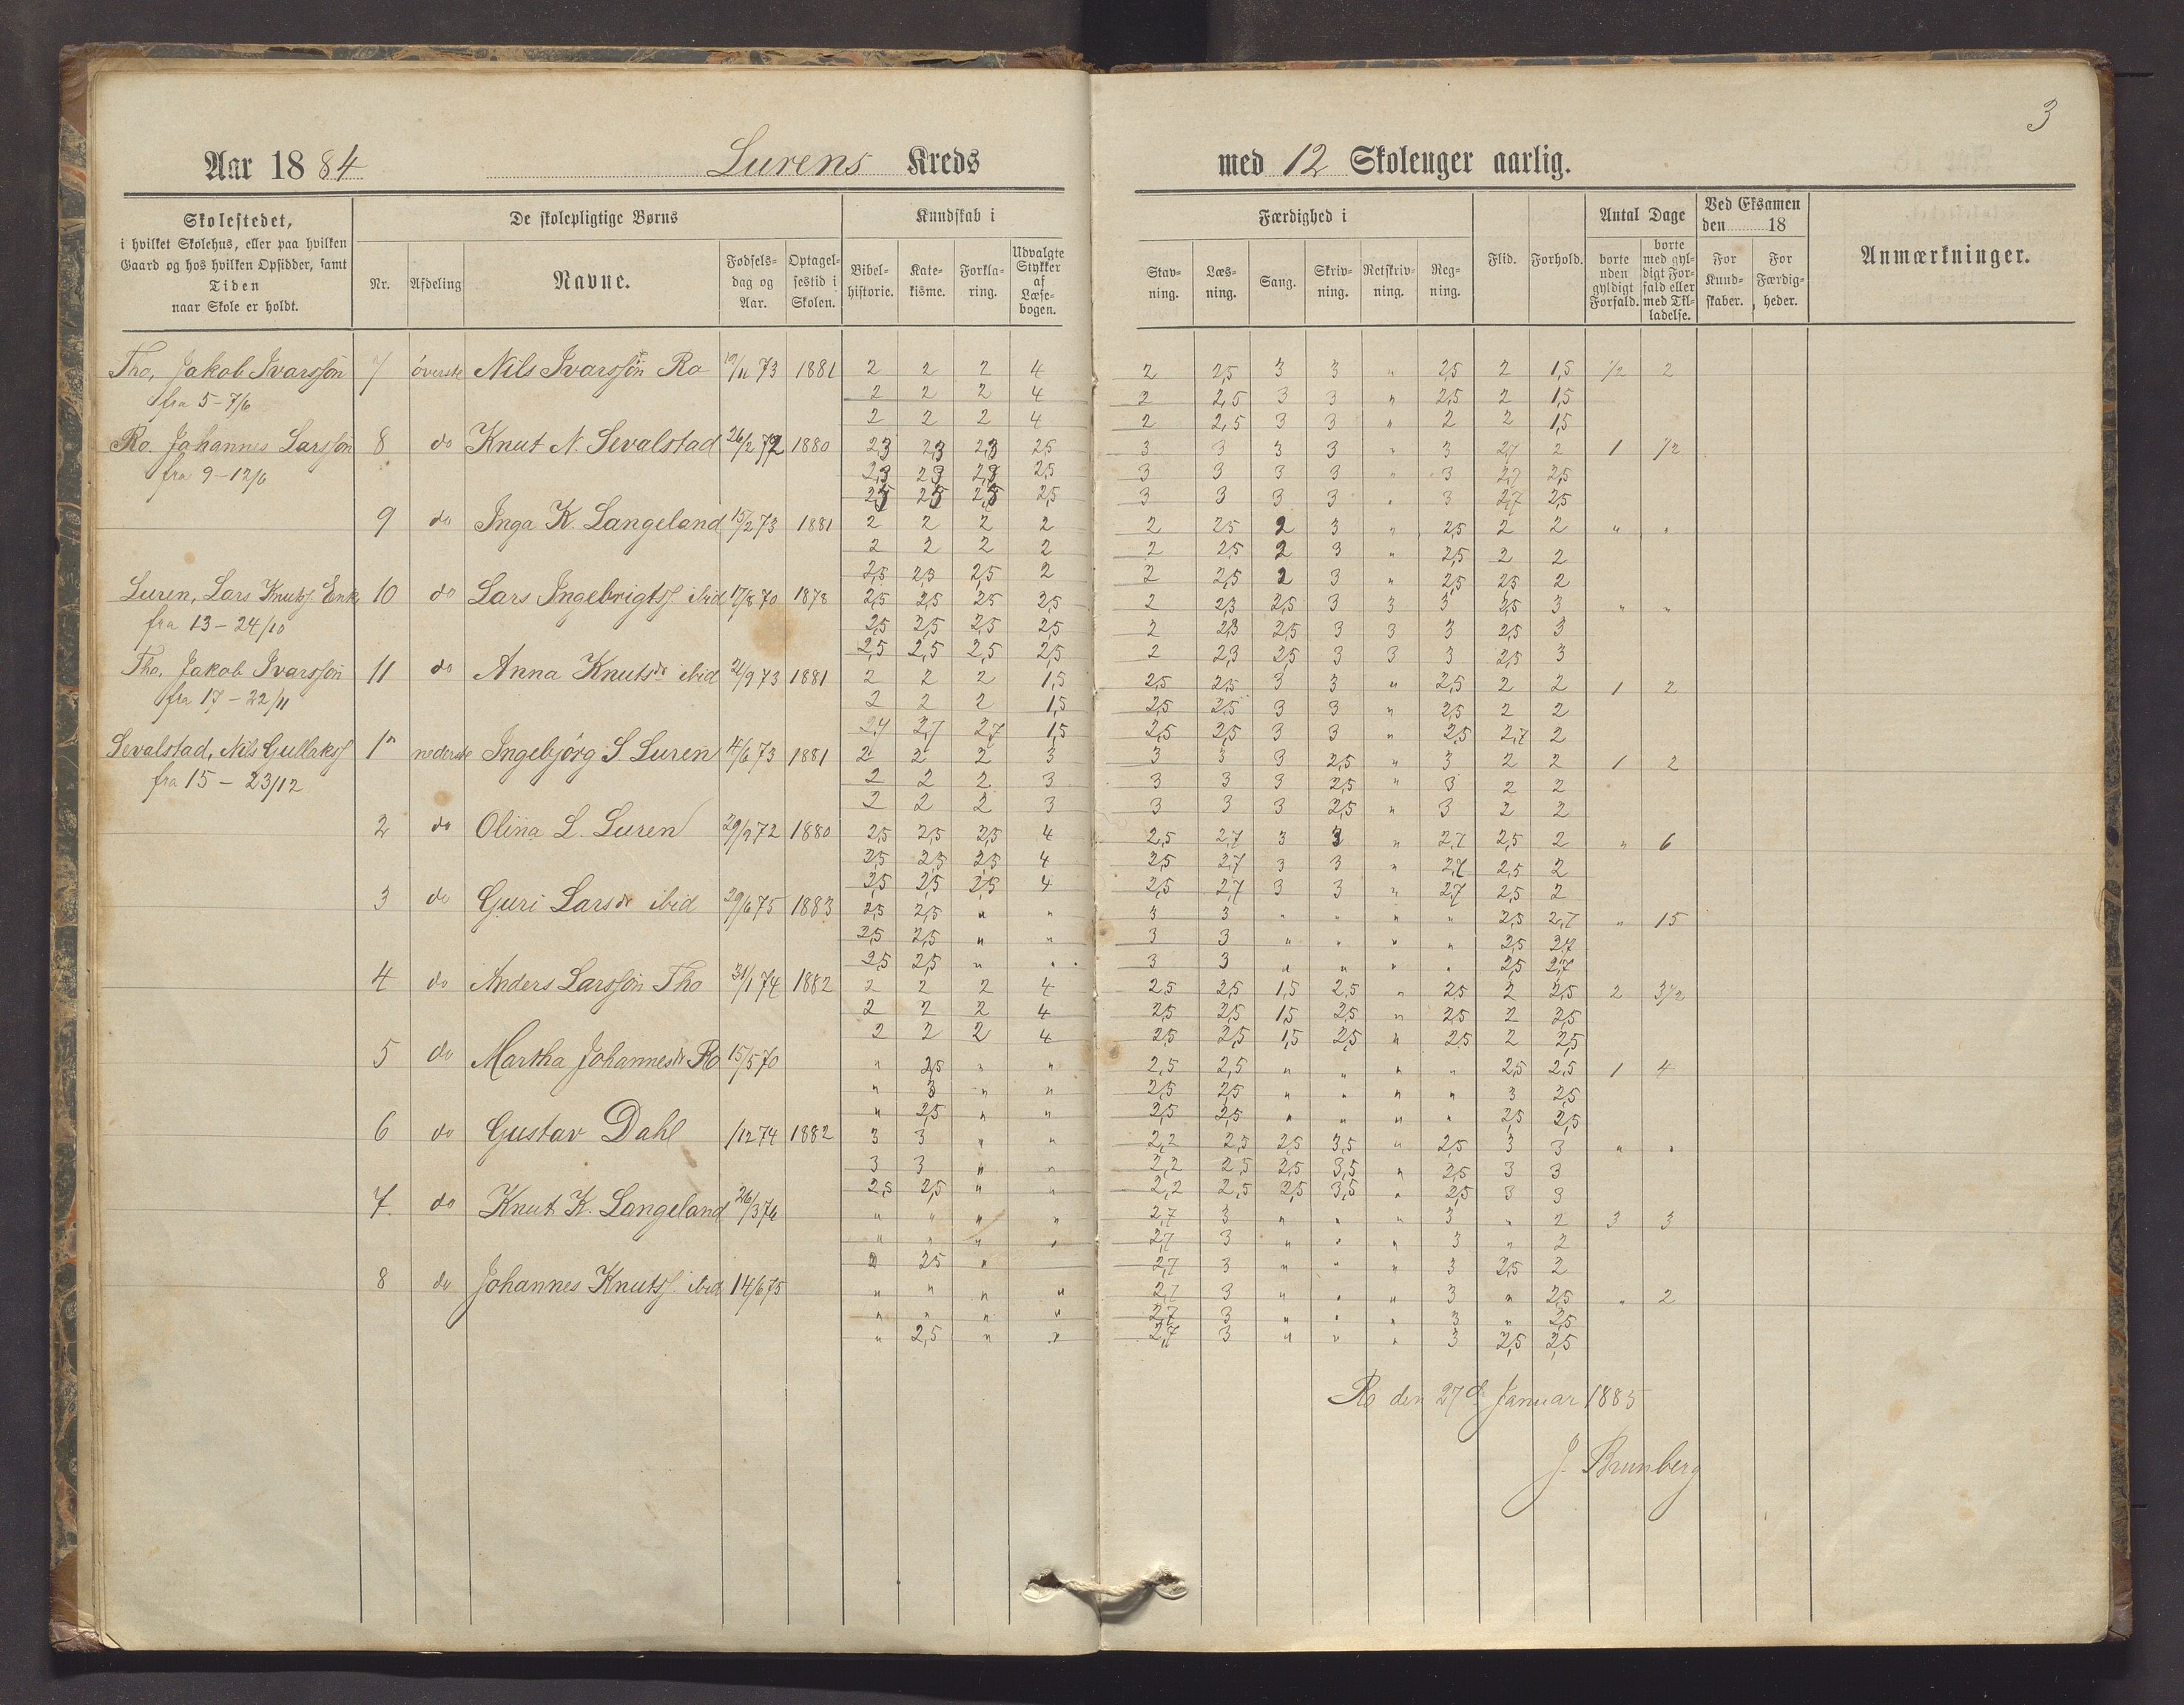 3
Aar 1884 Lurens Kreds med 12 Skoleuger aarlig.
Skolestedet, i hvilket Skolehus, eller paa hvilken Gaard og hos hvilken Opsidder, samt Tiden naar Skole er holdt.
De skolepligtige Børns
Nr. Afdeling Navne. Fødsels-dag og Aar. Optagel-sestid i Skolen.
Kundskab i
Bibel-historie. Kate-kisme. Forkla-ring. Udvalgte Stykker af Læse-bogen.
Færdighed i
Stav-ning. Læs-ning. Sang. Skriv-ning. Retskriv-ning. Reg-ning.
Flid. Forhold.
Antal Dage
borte uden gyldigt Forfald. borte med gyl-digt For-fald eller med Til-ladelse.
Ved Eksamen den 18
For Kund-skaber. For Færdig-heder.
Anmærkninger.
Tho, Jakob Ivarssön 7 överste Nils Ivarssön Ro 73 1881 2 2 2 4 2 2,5 3 3 " 2,5 2 1,5 1/2 2
fra 5-7/6 2 2 2 4 2 2,5 3 3 " 2,5 2 1,5
2 2 2 4 2 2,5 3 3 " 2 2 1,5
Ro. Johannes Larssön 8 do Knut N. Sevalstad 26/2 72 1880 2,3 2,3 2,3 2,5 3 3 3 3 " 3 2,7 2 1 1/2
fra 9-12/6 2,3 2,3 2,3 2,5 3 3 3 3 " 3 2,7 2,5
2,5 2,5 2,5 2,5 3 3 3 3 " 3 2,7 2,5
9 do Inga K. Langeland 15/2 73 1881 2 2 2 2 2 2,5 2 3 " 2,5 2 2 " "
2 2 2 2 2 2,5 2 3 " 2,5 2 2
2,5 2,3 2,5 2 2 2,5 2 3 " 2,5 2,5 2
Luren, Lars Knuts. Enk 10 do Lars Ingebrigts. ibid 17/8 70 1878 2,5 2,5 2,5 2,5 2 2,3 2,5 3 3 3 2,5 3 " "
fra 13-24/10 2,5 2,5 2,5 2,5 2 2,3 2,5 3 3 3 2,5 3
2,5 2,5 2,5 2,5 2 2,3 2,5 3 3 3 2,5 3
Tho, Jakob Ivarssön 11 do Anna Knutsdr ibid 21/9 73 1881 2 2 2 1,5 2,5 2,5 3 3 " 2,5 2 2 1 2
fra 17-22/11 2 2 2 1,5 2,5 2,5 3 3 " 2,5 2 2
2,7 2,7 2,7 1,5 2,5 2,5 3 3 " 2,5 2,7 2
Sevalstad, Nils Gullakss 1 nederste Ingebjörg S Luren 4/6 73 1881 2 2 2 3 3 3 3 2,5 " 3 2 2 1 2
fra 15-23/12 2 2 2 3 3 3 3 2,5 " 3 2 2
2 2 2 3 3 3 3 2,5 " 3 2 2
2 do Olina L. Luren 29/9 72 1880 2,5 2,5 2,5 4 2,5 2,7 3 3 " 2,7 2,5 2 " 6
2,5 2,5 2,5 4 2,5 2,7 3 3 " 2,7 2,5 2
2,5 2,5 2,5 4 2,5 2,7 3 3 " 2,7 2,5 2
3 do Guri Larsdr ibid 29/6 75 1883 2,5 2,5 " " 3 3 " " " " 2,5 2,7 " 15
2,5 2,5 " " 3 3 " " " " 2,5 2,7
2,5 2,5 " " 3 3 " " " " 2,5 2,7
4 do Anders Larssön Tho 31/1 74 1882 2 2 2 4 2,5 2,5 1,5 2,5 " 2,5 2 2,5 2 3 1/2
2 2 2 4 2,5 2,5 1,5 2,5 " 2,5 2 2,5
2 2 2 4 2,5 2,5 1,5 2,5 " 2,5 2 2,5
5 do Martha Johannesdr Ro 15/5 70 " 2,5 " " 2,5 2,5 " " " " 2,5 2,5 1 4
" 3 " " 2,5 2,5 " " " " 3 2,5
" 2,5 " " 2,5 2,5 " " " " 2,5 2,5
6 do Gustav Dahl /12 74 1882 3 3 " " 2,2 2,5 2,5 3,5 " 2,5 3 3 " "
3 3 " " 2,2 2,5 2,5 3,5 " 2,5 3 3
2,5 2,5 " " 2,2 2,5 2,5 3,5 " 2,5 3 3
7 do Knut K. Langeland 26/3 76 " " " " 2,7 3 " " " 3 " 2 3 3
" " " " 2,7 3 " " " 3 " 2
2 2,5 " 2,7 3 " " " 3 2,5 2
8 do Johannes Knuts. ibid 14/6 75 " " " " 2,7 3 " " " 3 " 2,5 " 2
" " " " 2,7 3 " " " 3 " 2,5
" 2,5 " " 2,7 3 " " " 3 2,5 2,5
Ro den 27de Januar 1885
J. Brunberg